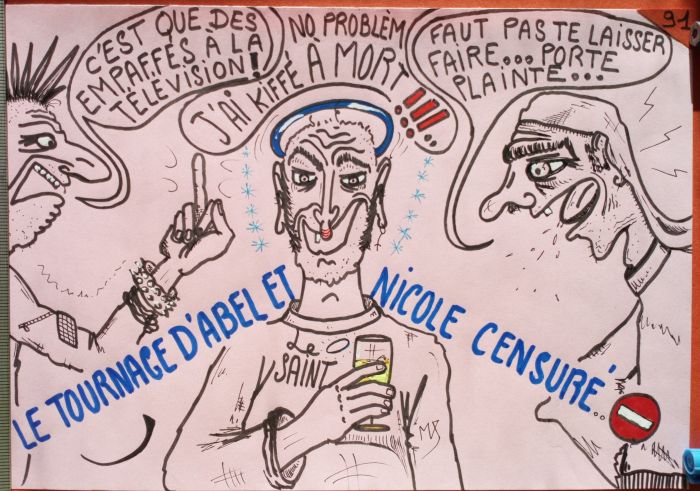 C'EST QUE DES
EMPAFFÉS À LA
TÉLÉVISION!
NO PROBLÈM
J'AI KIFFÉ À MORT
!!!
FAUT PAS TE LAISSER
FAIRE... PORTE
PLAINTE...
91
LE TOURNAGE D'ABEL ET NICOLE CENSURÉ...
Le
SAINT